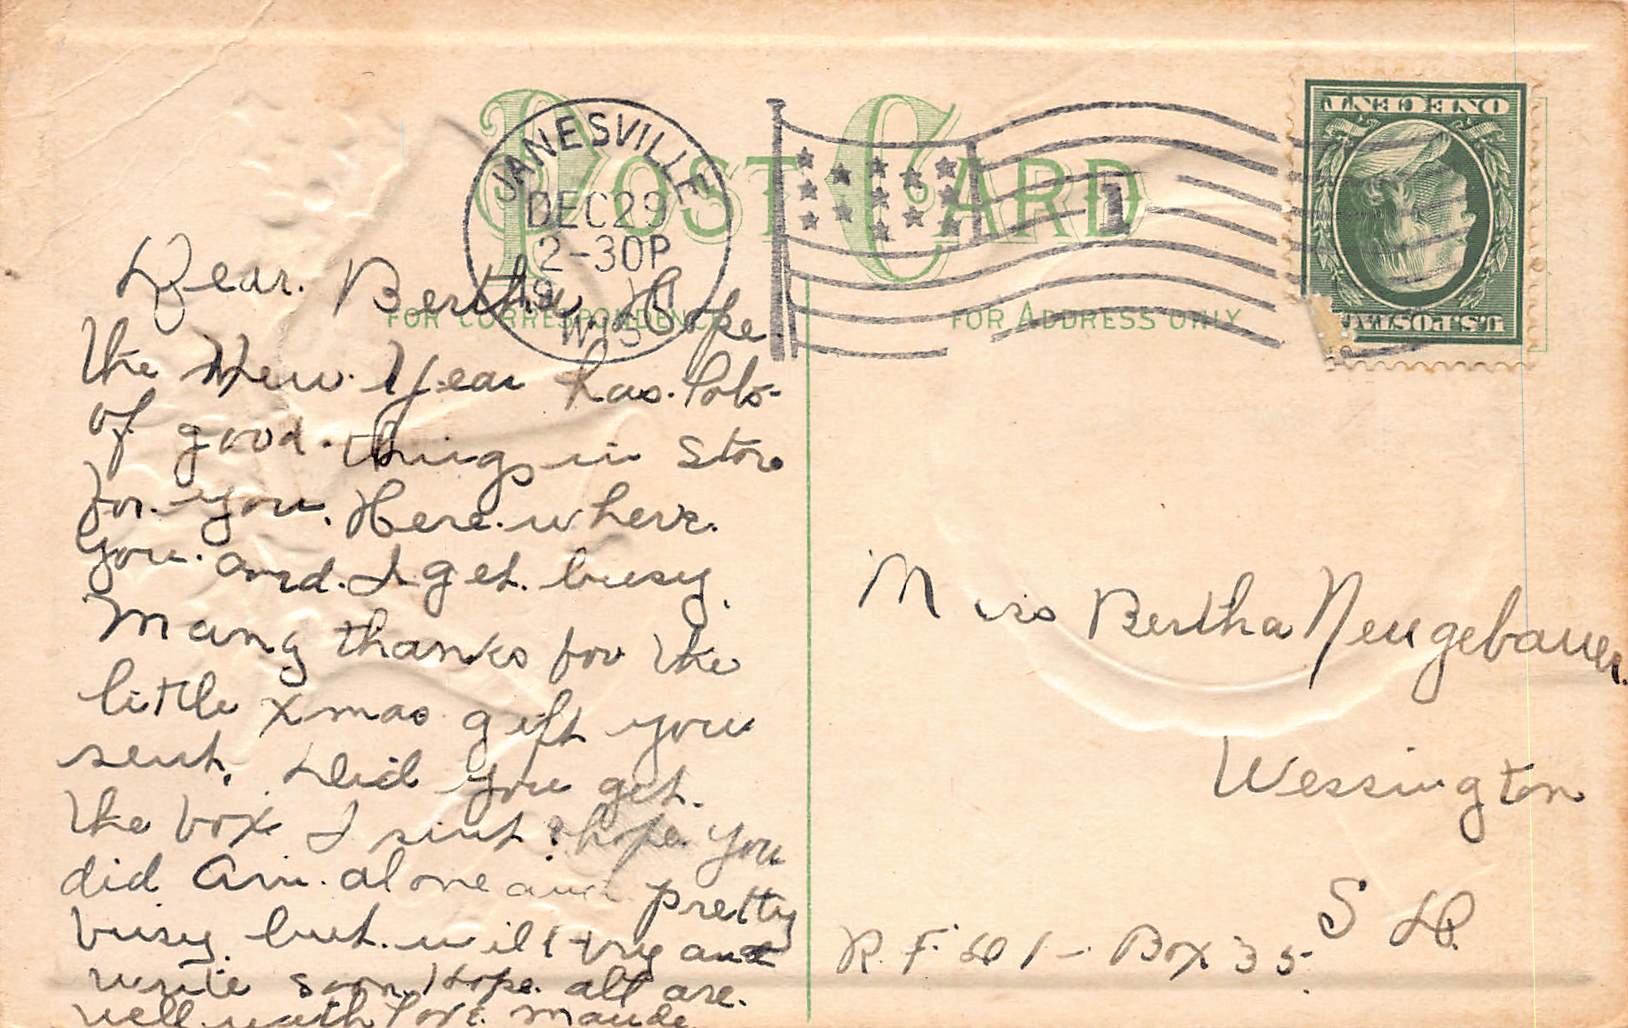 POST CARD
FOR CORRESPONDENCE
FOR ADDRESS ONLY
JANESVILLE
DEC 29
2-30P
19
WIS
1
ONE CENT
U.S. POSTAGE
Dear. Bertha Hope
the New. Year has. lots-
of good. things in store
for. you. Here. where.
you. and. I get. busy.
Many thanks for the
little xmas gift you
sent. Did you get.
the box I sent? hope. you
did Am. alone and pretty
busy. but. will try and
write soon. Hope. all are.
well with love. maude.
Miss Bertha Neugebauer.
Wessington
S D.
R. F. D 1 - Box 35.